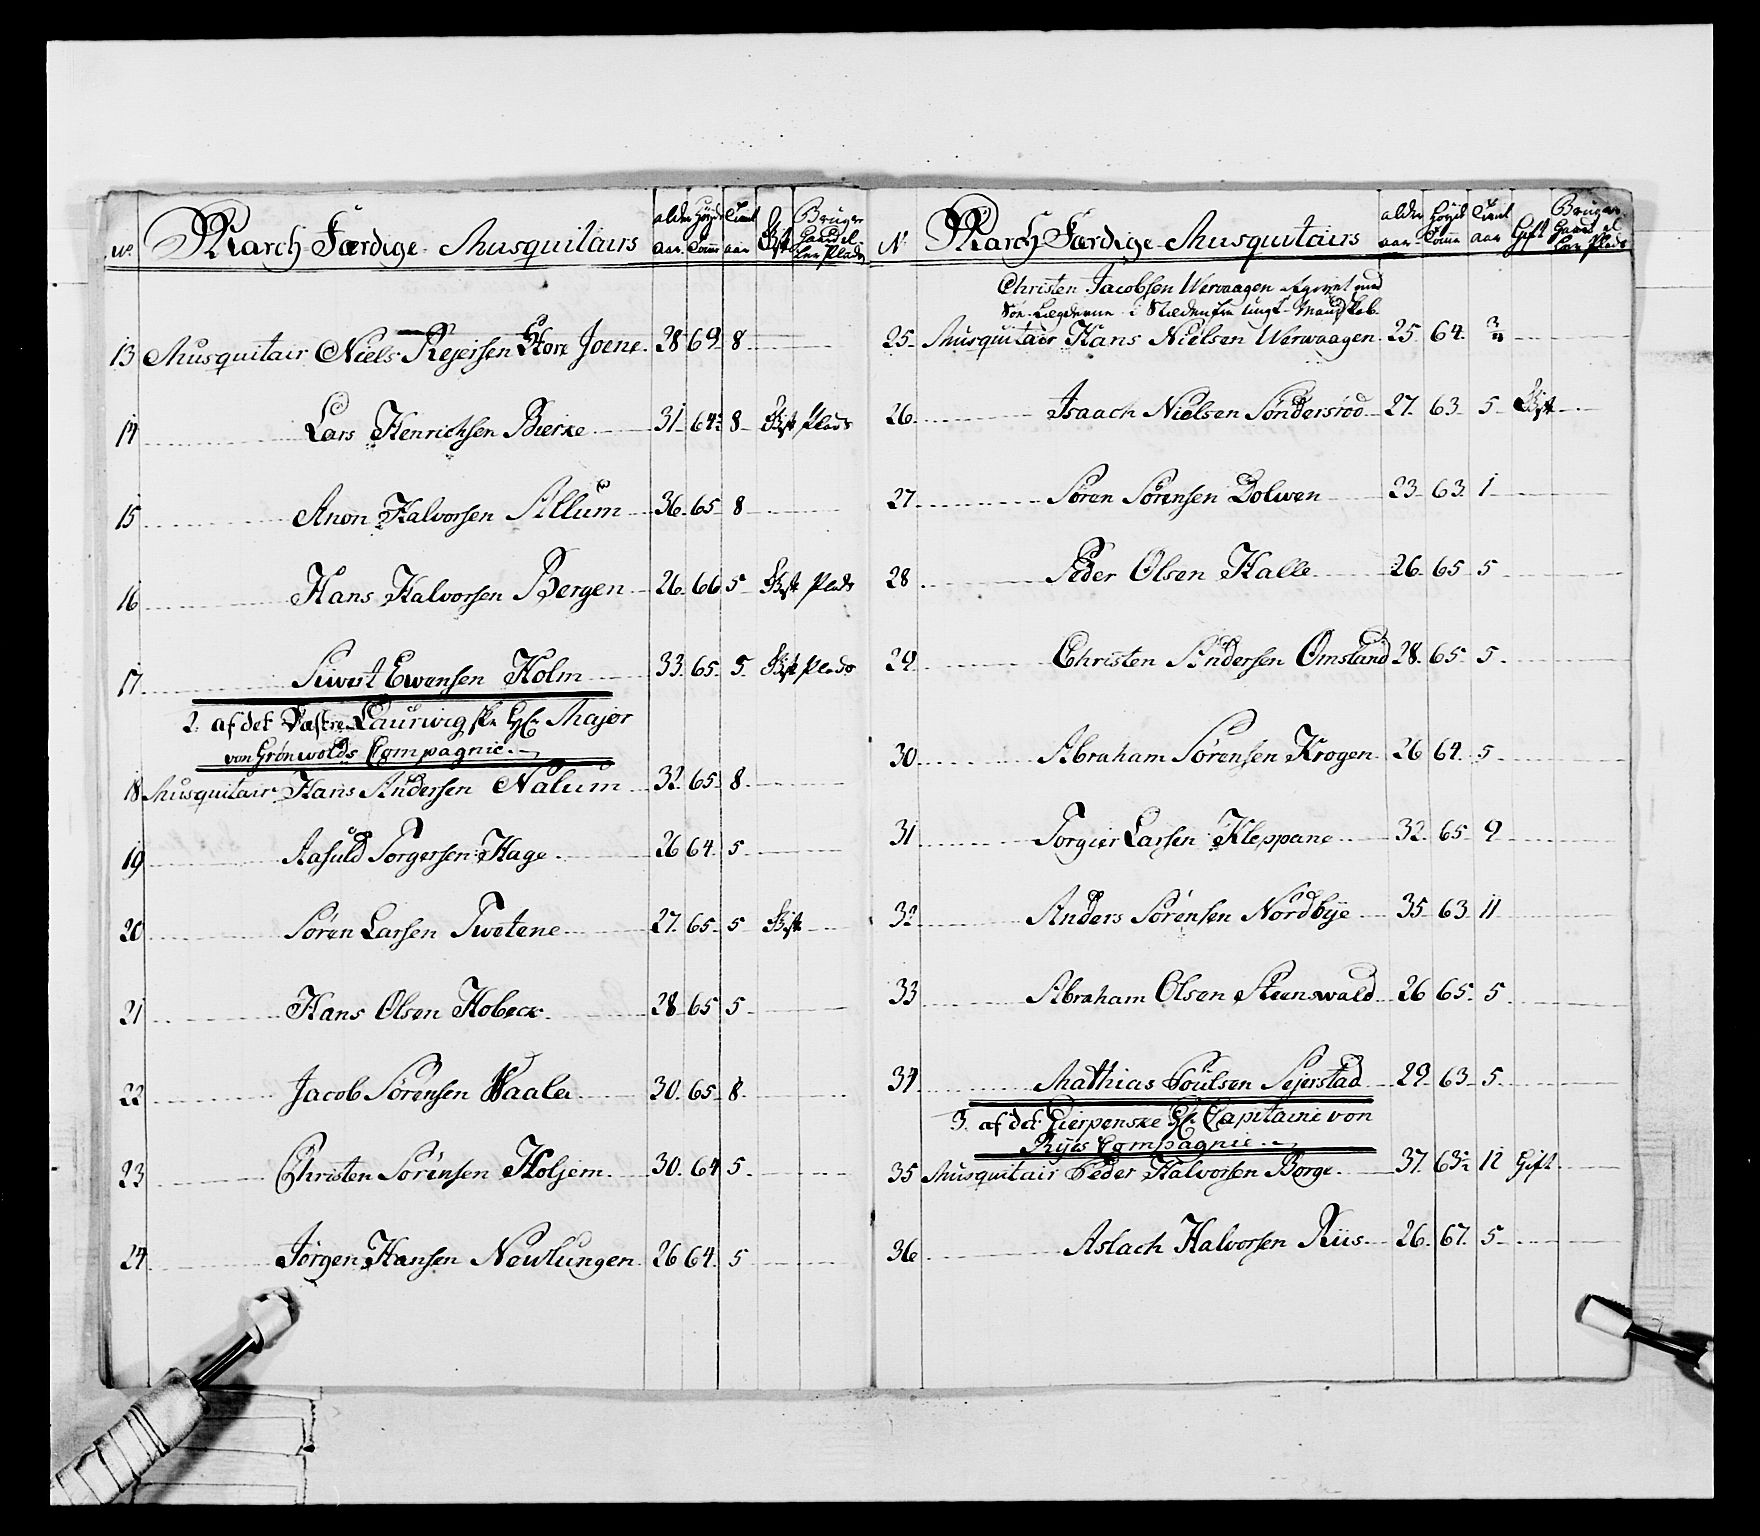 No. March Færdige Musquitairs alder aar. Høyde Tomme Tient aar Gift Bruger Gaard eller Plads
13 Musquitair Niels Rejersen Store Joene 28 69 8
14 Lars Henrichsen Bierke 31 64½ 8 Gift Plads
15 Anon Halvorsen Allum 36 65 8
16 Hans Halvorsen Bergen 26 66 5 Gift Plads
17 Siwert Ewensen Holm 33 65 5 Gift Plads
2. af det Laurwigske Major
von Grønwolds Compagnie
18 Musquitair Hans Andersen Nalum 32 65 8
19 Aasuld Torgersen Hage 26 64 5
20 Søren Larsen Twetene 27 65 5 Gift
21 Hans Olsen Hobeck 28 65 5
22 Jacob Sørensen Waale 30 65 8
23 Christen Sørensen Holjem 30 64 5
24 Jørgen Hansen Newlungen 26 64 5
N. March Færdige Musquitairs alder aar Høyde Tomme Tient aar Gift Bruger Gaard el ler Plads
Christen Jacobsen Werwaagen med
Søe Lægderne i Stæden for ungt Mandskab
25 Musquitair Hans Nielsen Werwaagen 25 64
26 Isaach Nielsen Søndersrød 27 63 5 Gift
27 Søren Sørensen Dolwen 23 63 1
28 Peder Olsen Halle 26 65 5
29 Christen Andersen Omsland 28 65 5
30 Abraham Sørensen Krogen 26 64 5
31 Torgier Larsen Kleppane 32 65 9
32 Anders Sørensen Nordbye 35 63 11
33 Abraham Olsen Steenswald 26 65 5
34 Mathias Poulsen Sejerstad 29 63 5
3. af det Gierpenske Capitaine von
Ryes Compagnie
35 Musquitair Peder Halvorsen Borge 37 63½ 12 Gift
36 Aslach Halvorsen Riis 26 67 5